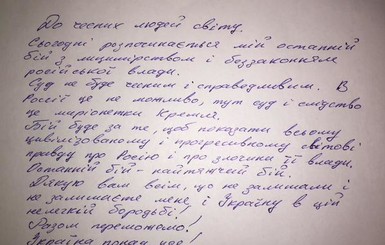 До чесних людей світу.
Сьогодні розпочинається мій останній
бій з лицимірством і беззаконням
російської влади.
Суд не буде чесним і справедливим. В
Росії це не можливо, тут суд і слідство
це маріонетки Кремля.
Бій буде за те, щоб показати всьому
цивілізованому і прогресивному світові
правду про Росію і про злочини її влади.
Останній бій - найтяжчий бій.
Дякую вам всім, що не залишали і
не залишаєте мене, і Україну в цій
нелегкій боротьбі!
Разом переможемо!
Україна понад усе!